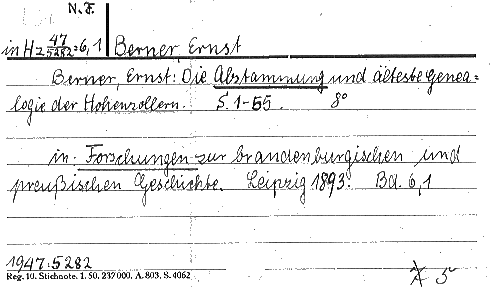 N. F.
in Hz 47/5282-6,1 Berner, Ernst
Berner, Ernst: Die Abstammung und älteste Genea=
logie der Hohenzollern. S. 1-55. 8°
in: Forschungen zur brandenburgischen und
preußischen Geschichte. Leipzig 1893. Bd. 6,1
1947:5282
Reg. 10. Stichnote. 1. 50. 237000. A. 803. S. 4062